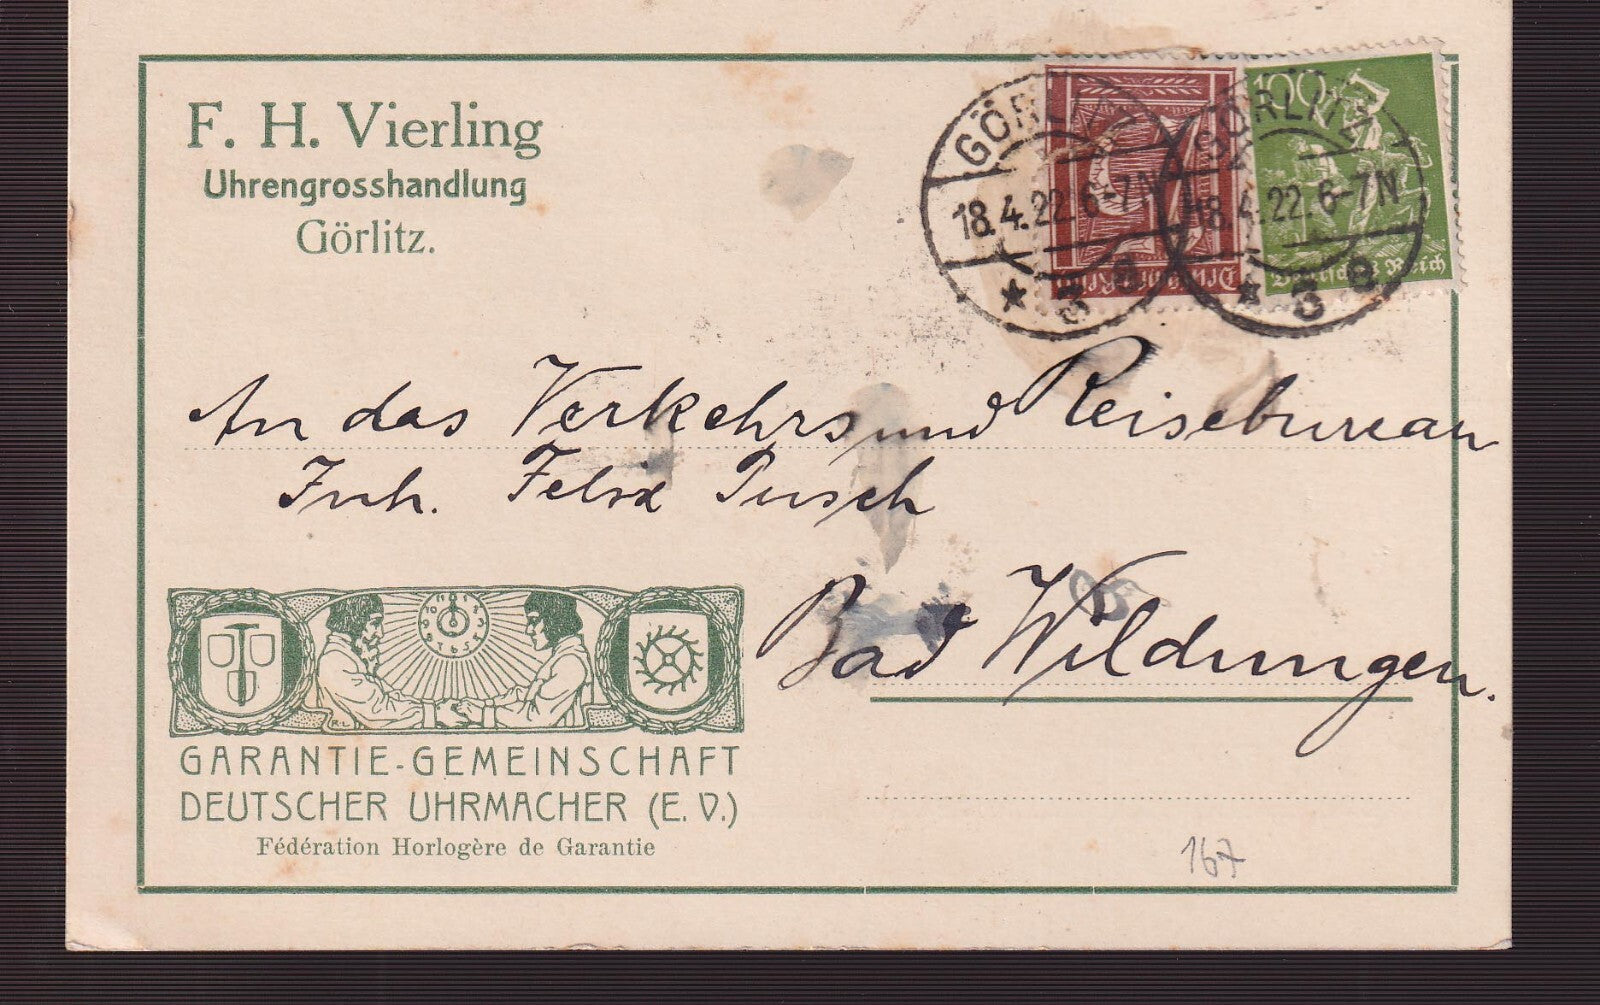 F. H. Vierling
Uhrengrosshandlung
Görlitz.
GÖRLITZ
18.4.22.6-7N
* 3 a
GÖRLITZ
18.4.22.6-7N
* 3 a
100
Deutsches Reich
Deutsches Reich
An das Verkehrs und Reisebureau
Inh. Felix Pusch
Bad Wildungen.
R.L.
GARANTIE-GEMEINSCHAFT
DEUTSCHER UHRMACHER (E. V.)
Fédération Horlogère de Garantie
167